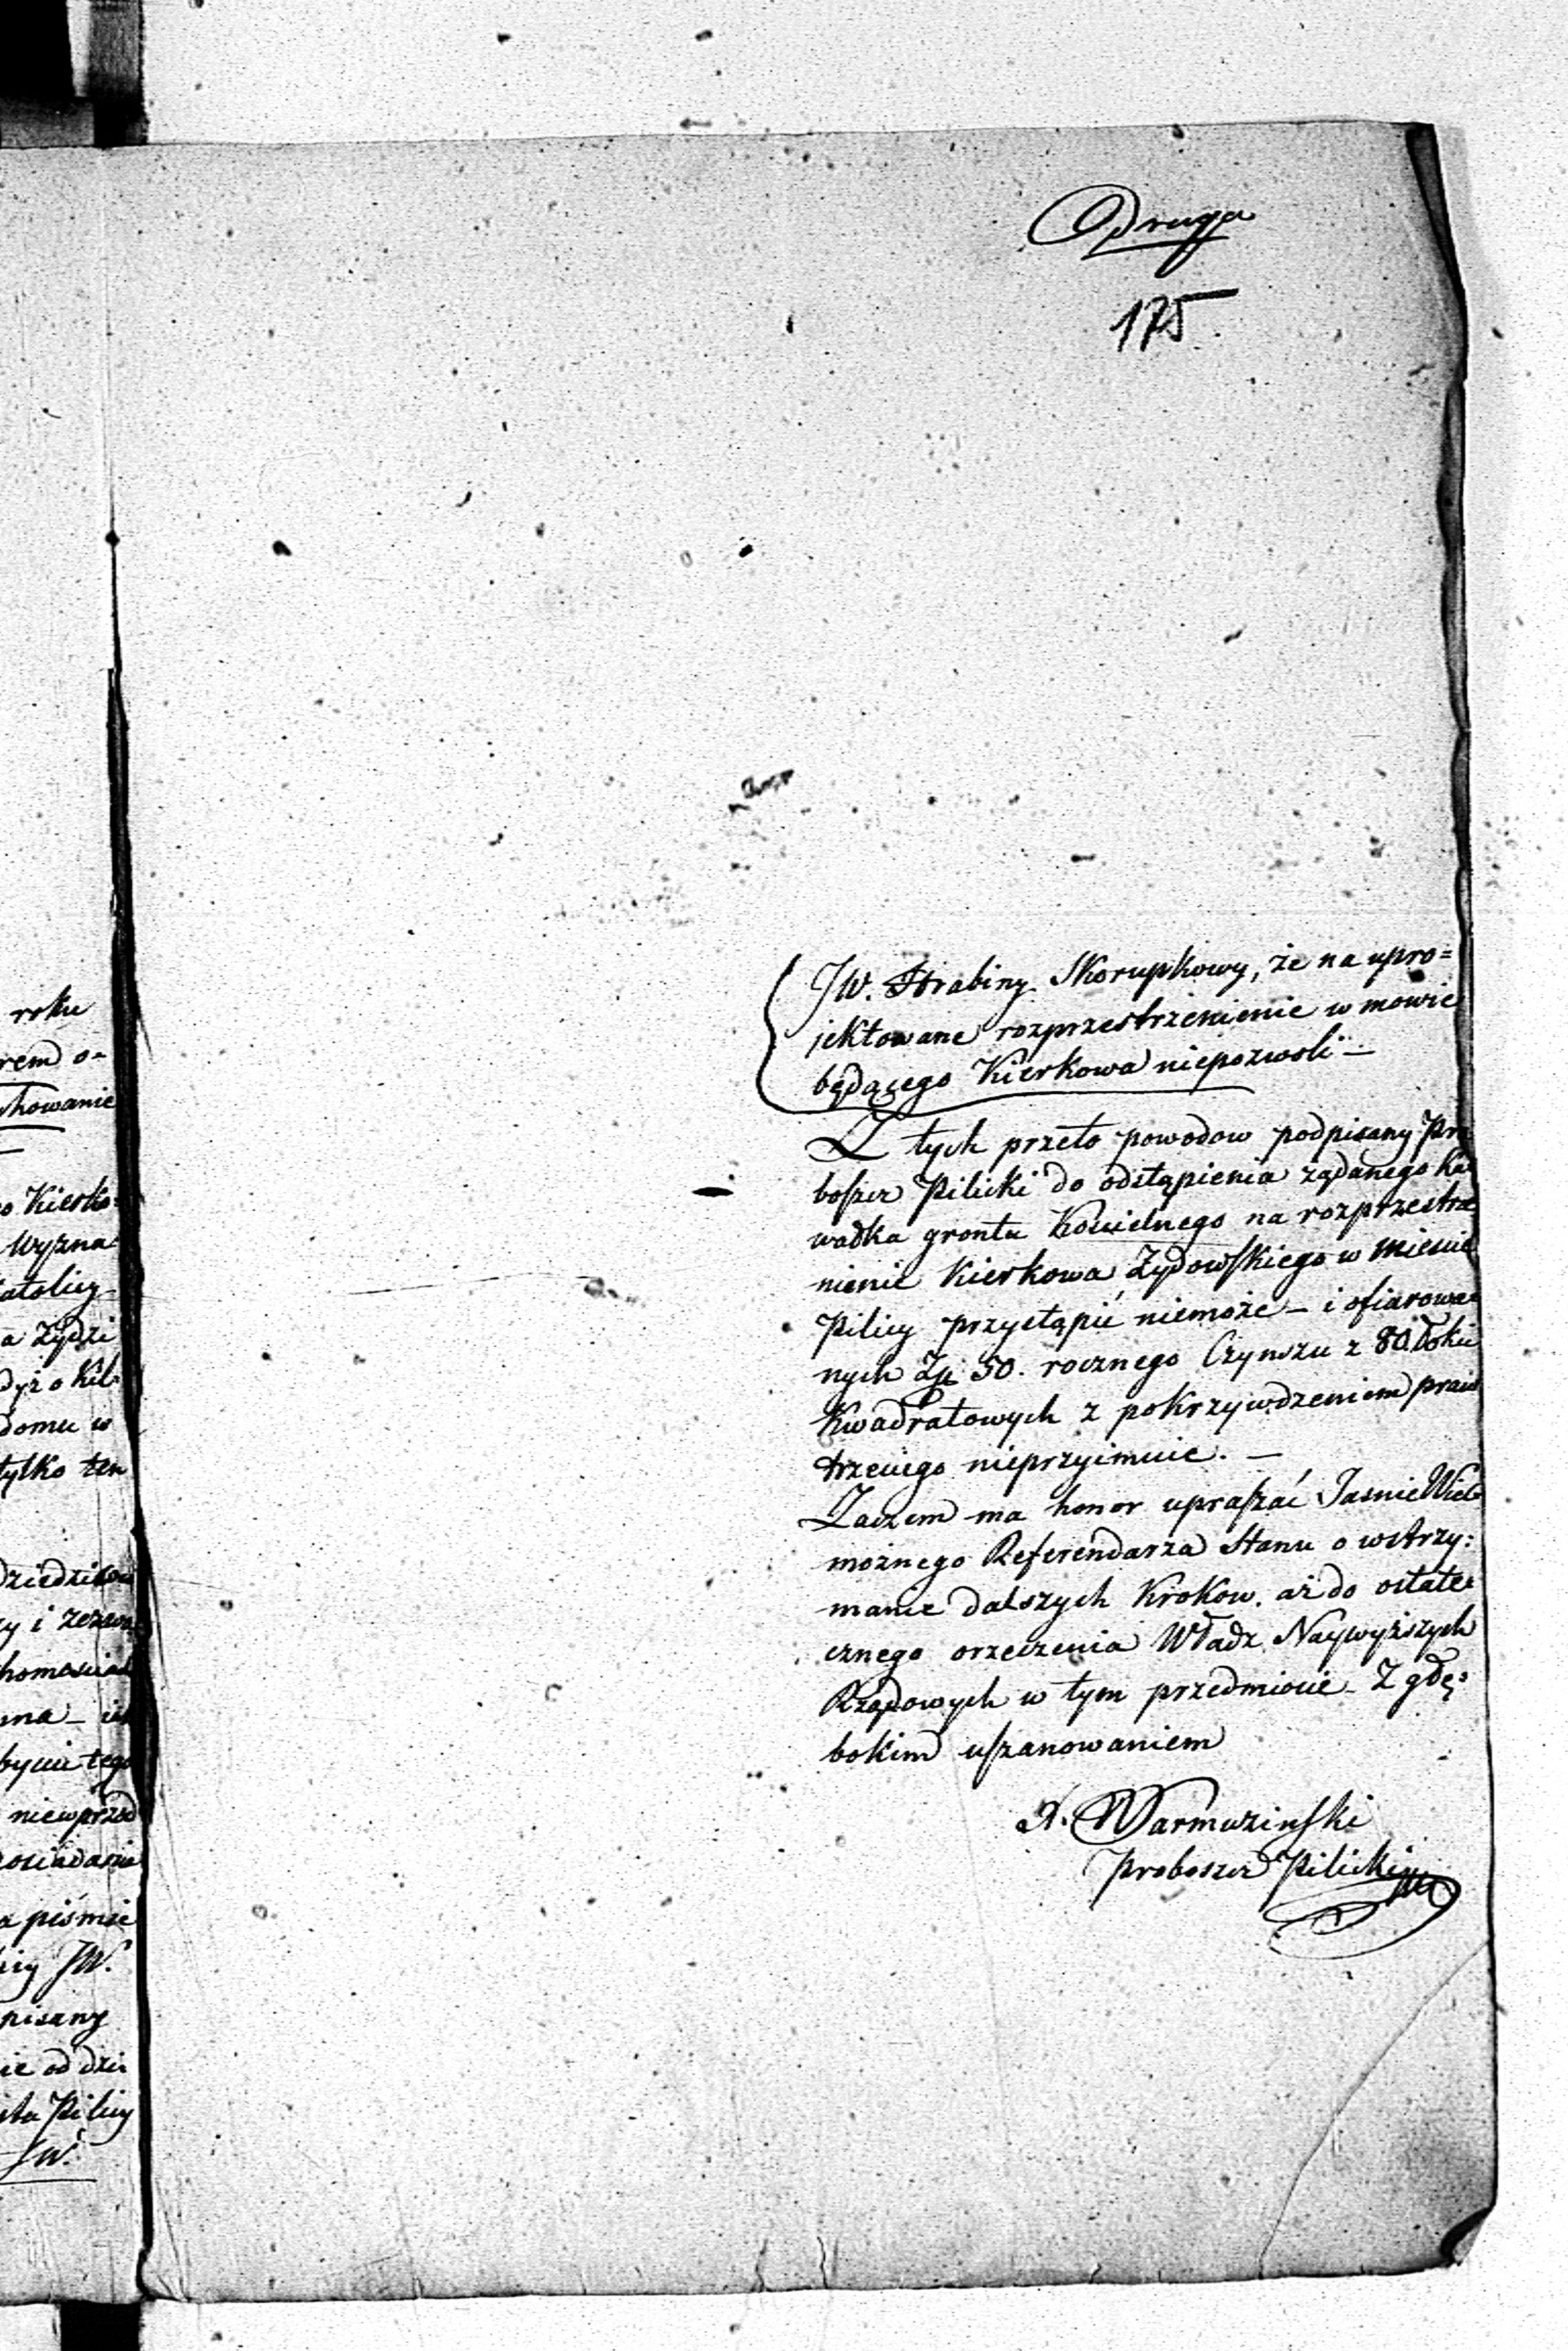 roku
rem o-
howanie
o Kierko=
Wyzna
atolicy
a Żydzi
dyż o Kil
domu w
tylko ten
dziedzicow
y i zezwo
na
byciu tego
niewprzód
a piśmie
JW.
pisany
ie od dzie
sta Pilicy
JW.
Druga
175
JW. Hrabiny Skorupkowy, że na upro=
jektowane rozprzestrzenienie w mowie
będącego Kierkowa niepozwoli —
Z tych przeto powodow podpisany Pro
boszcz Pilicki do odstąpienia żądanego Ka
wałka grontu Kościelnego na rozprzestrze
nienie Kierkowa Żydowskiego w Mieście
Pilicy przystąpić niemoże — i ofiarowa=
nych Zp 50. rocznego Czynszu z 80 Łokci
Kwadratowych z pokrzywdzeniem praw
trzeciego nieprzyimuie. —
Zaczem ma honor upraszać Jasnie Wiel
możnego Referendarza Stanu o wstrzy=
manie dalszych Krokow. aż do ostate=
cznego orzeczenia Władz Naywyższych
Rządowych w tym przedmiocie — Z głę=
bokim uszanowaniem
X. Warmuzinski
Proboszcz Pilicki